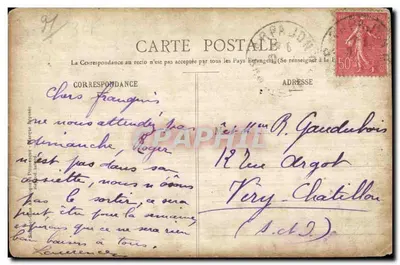 91
CARTE POSTALE
La Correspondance au recto n'est pas acceptée par tous les Pays Étrangers (Se renseigner à la
CORRESPONDANCE
ADRESSE
ARPAJON
50c
Chers françois
ne nous attendez pas
dimanche, Roger
n'est pas dans son
assiette, nous n'osons
pas le sortir, ce sera
peut être pour la semaine,
espérons que ce ne sera rien
bons baisers à tous.
Laurence
et Mme R. Gaudubois
12 rue Argot
Viry-Chatillon
(S. et O.)